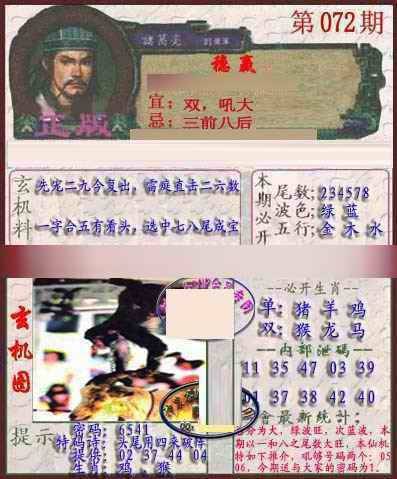 第072期
諸葛亮
德赢
宜:双,吼大
忌:三前八后
正版
玄机料
先宅二九今复出,需庭直击二六数
一字合五有看头,选中七八尾成宝
本期必开
尾数:234578
波色:绿 蓝
五行:金 木 水
玄机图
--必开生肖--
单:猪 羊 鸡
双:猴 龙 马
--内部泄码--
11 35 47 03 39
37 38 42 40
會最新统计:
分为大,绿波旺,次蓝波,本
期以一和八之尾数大旺,本仙机
特如下推介,吼够号码两个:05
06,今期送与大家的密码为1.
提示
密码:6541
特码诗:头尾用四来破阵
提供:02 37 44 04
生肖:鸡,猴